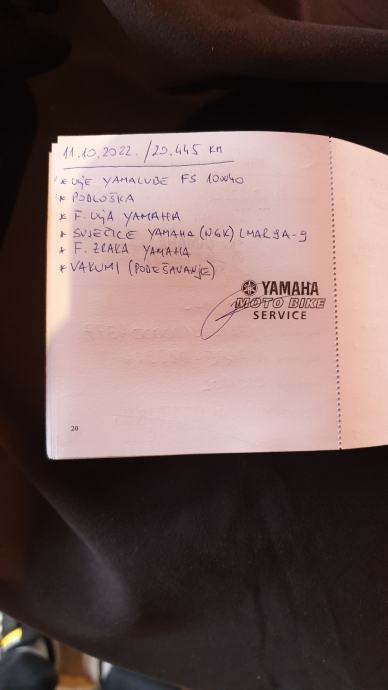 11.10.2022. /20.445 KM
* ULJE YAMALUBE FS 10W40
* PODLOŠKA
* F. ULJA YAMAHA
* SVJEĆICE YAMAHA (NGK) LMAR9A-9
* F. ZRAKA YAMAHA
* VAKUMI (PODEŠAVANJE)
YAMAHA
MOTO BIKE
SERVICE
20